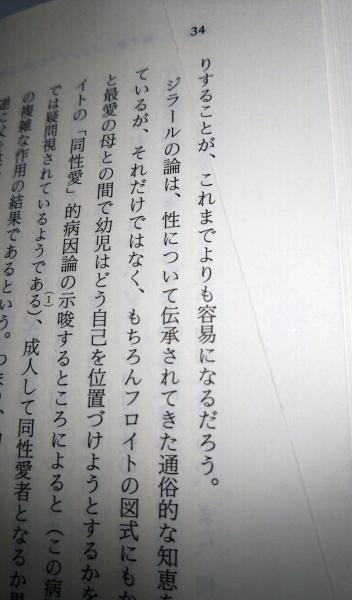 34
りすることが、これまでよりも容易になるだろう。
ジラールの論は、性について伝承されてきた通俗的な知恵を
ているが、それだけではなく、もちろんフロイトの図式にもか
と最愛の母との間で幼児はどう自己を位置づけようとするかを
イトの「同性愛」的病因論の示唆するところによると（この病
では疑問視されているようである)(1)、成人して同性愛者となるか男
の複雑な作用の結果であるという。つまり、
逆に父